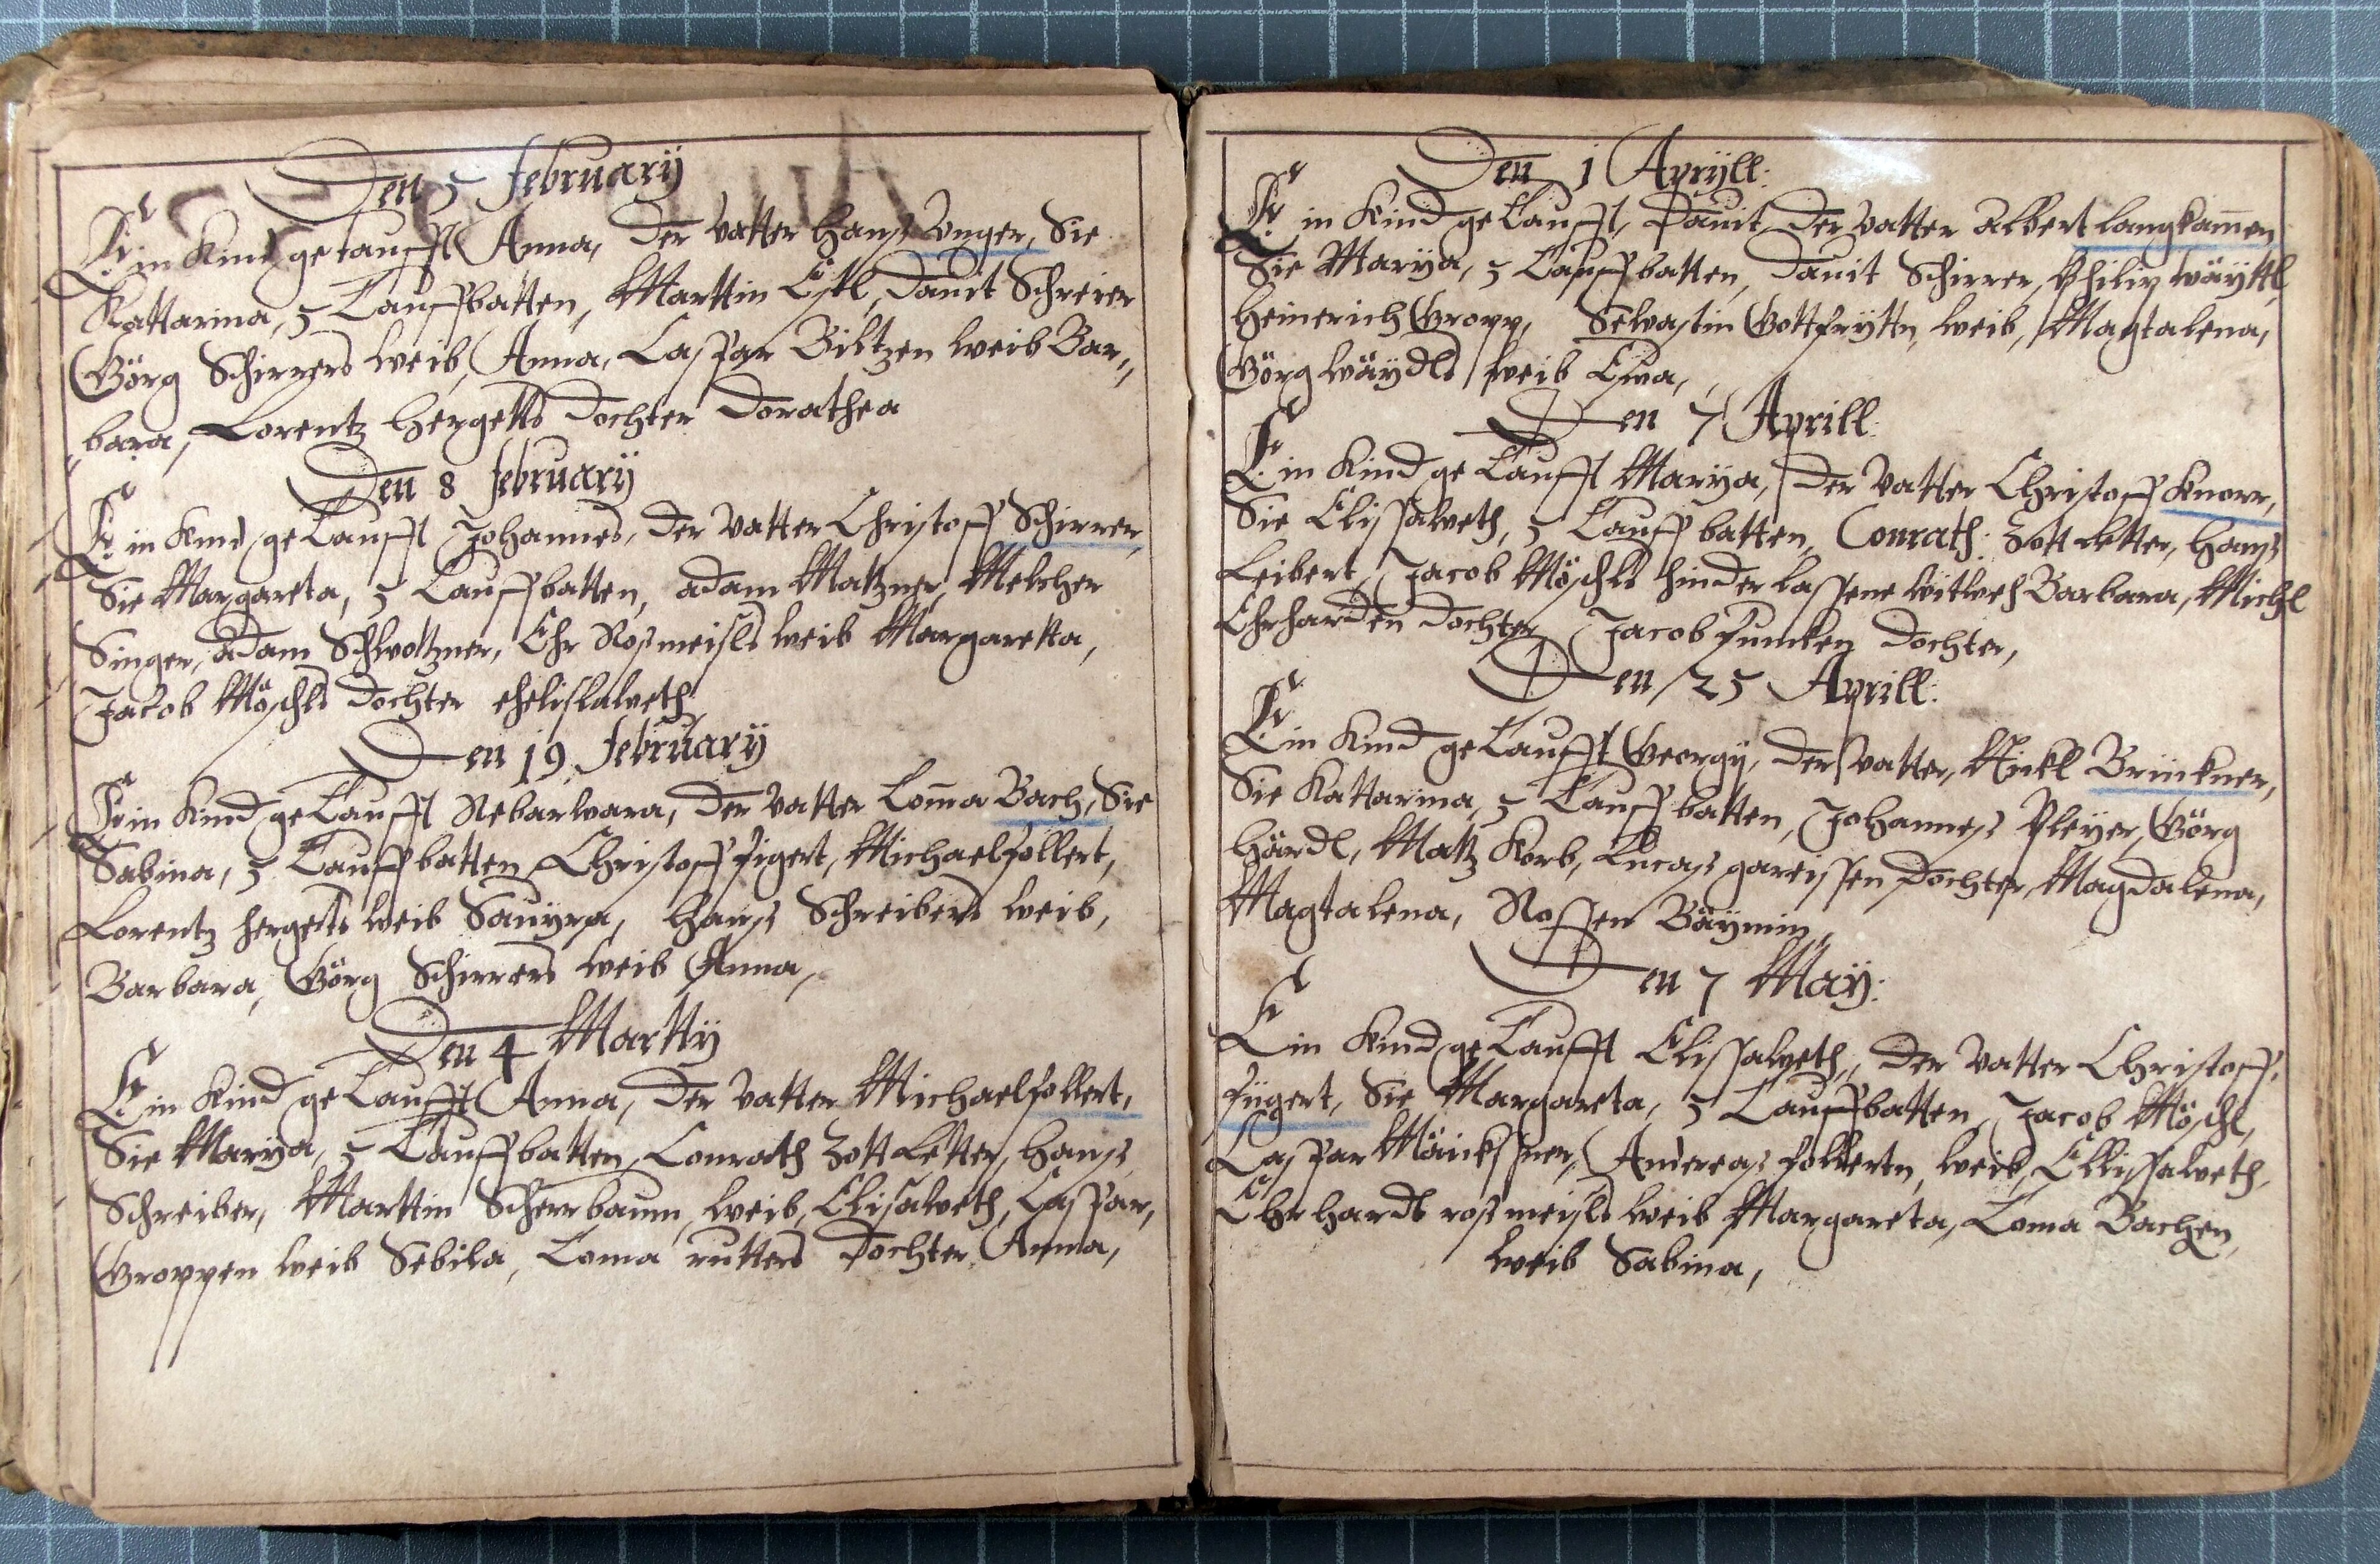 Den 5 February
Ein Kind getaufft Anna, der Vatter Hanß Unger, Sie
Kattarina, 5 Tauffbatten, Marttin Ertl, Dauit Schreier
Görg Schirrers weib, Anna, Caspar Biltzen weib Bar„
„bara, Lorentz Hergetts Dochter Dorathea
Den 8 February
Ein Kind getaufft Johannes, der Vatter Christoff Schirrer,
Sie Margareta, 5 Tauffbatten, adam Matzner, Melcher
Singer, adam Schwottzner, Ehr Rosmeisls weib Margaretta,
Jacob Möschls Dochter
Den 19 February
Ein Kind getaufft Rebarwara, der Vatter Toma Bach, Sie
Sabina, 5 Tauffbatten, Christoff figert, Michael follert,
Lorentz hergetts weib Sauyra, Hanß Schreibers weib,
Barbara, Görg Schirrers weib Anna,
Den 4 Marttÿ
Ein Kind getaufft Anna, der Vatter Michael follert,
Sie Marÿa, 5 Tauffbatten, Conrath Zottletter, Hanß
Schreiber, Marttin Scherbaum, weib, Elisaweth, Caspar,
Groppen weib Sebila, Toma rutters Dochter, Anna,
Den 1 Apryll:
Ein Kind getaufft, Dauit, der Vatter Albert langkam̄en
Sie Marÿa, 5 Tauffbatten, Dauit Schirrer, Philip Wäyttl,
Heinerich Gropp, Sewastin Gottfrytn, weib, Magtalena,
Görg Wäydls weib Ewa,
Den 7 Aprill:
Ein Kind getaufft Marÿa, der Vatter Christoff Knorr,
Sie Elissaweth, 5 Tauffbatten, Conrath: Zottletter, Hanß
Leibert, Jacob Möschls hinder lassene witweh Barbara, Michl
Ehrharden Dochter, Jacob Funcken Dochter,
Den 25 Aprill:
Ein Kind getaufft Georgy, der Vatter, Nickl Brünkner,
Sie Kattarina, 5 Tauffbatten, Johanneß Pleyer, Görg
Härdl, Matz Korb, Lucaß gareissen Dochter, Magdalena,
Magtalena, Rossen Bäymin,
Den 7 Maÿ:
Ein Kind getaufft Elissaweth, der Vatter Christoff,
fügert, Sie Margareta, 5 Tauffbatten, Jacob Möschl,
Caspar Mäncksner, Andereaß follertn, weib, Ellissaweth,
Ehrhardt rosmeisls weib Margareta, Toma Bachen,
weib Sabina,